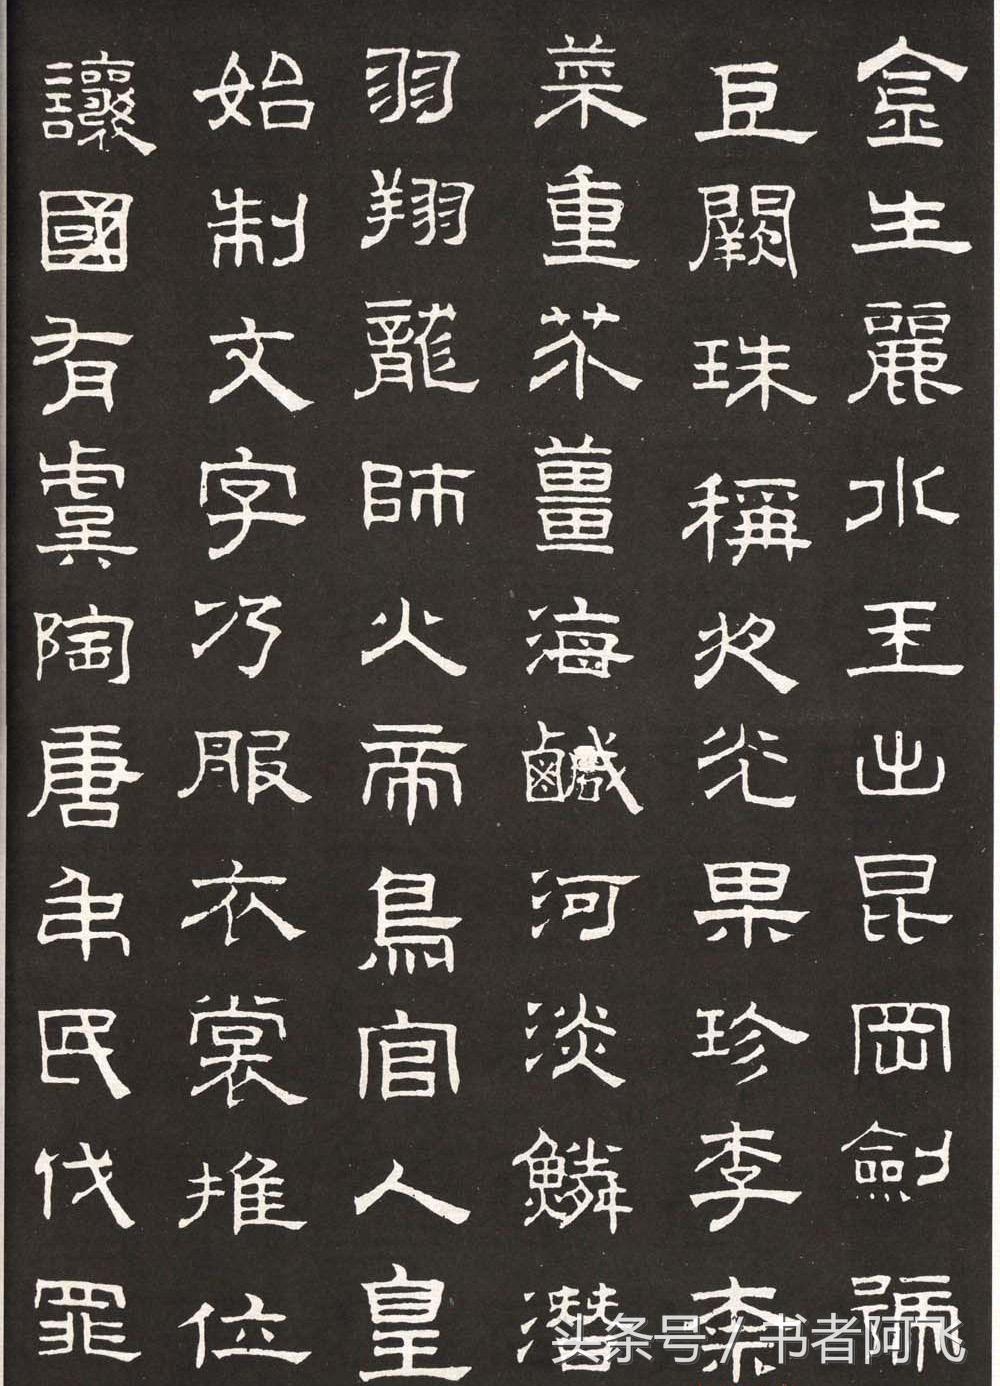 金生麗水玉出昆岡劍號
巨闕珠稱夜光果珍李柰
菜重芥薑海鹹河淡鱗潛
羽翔龍師火帝鳥官人皇
始制文字乃服衣裳推位
讓國有虞陶唐弔民伐罪
头条号 / 书者阿飞